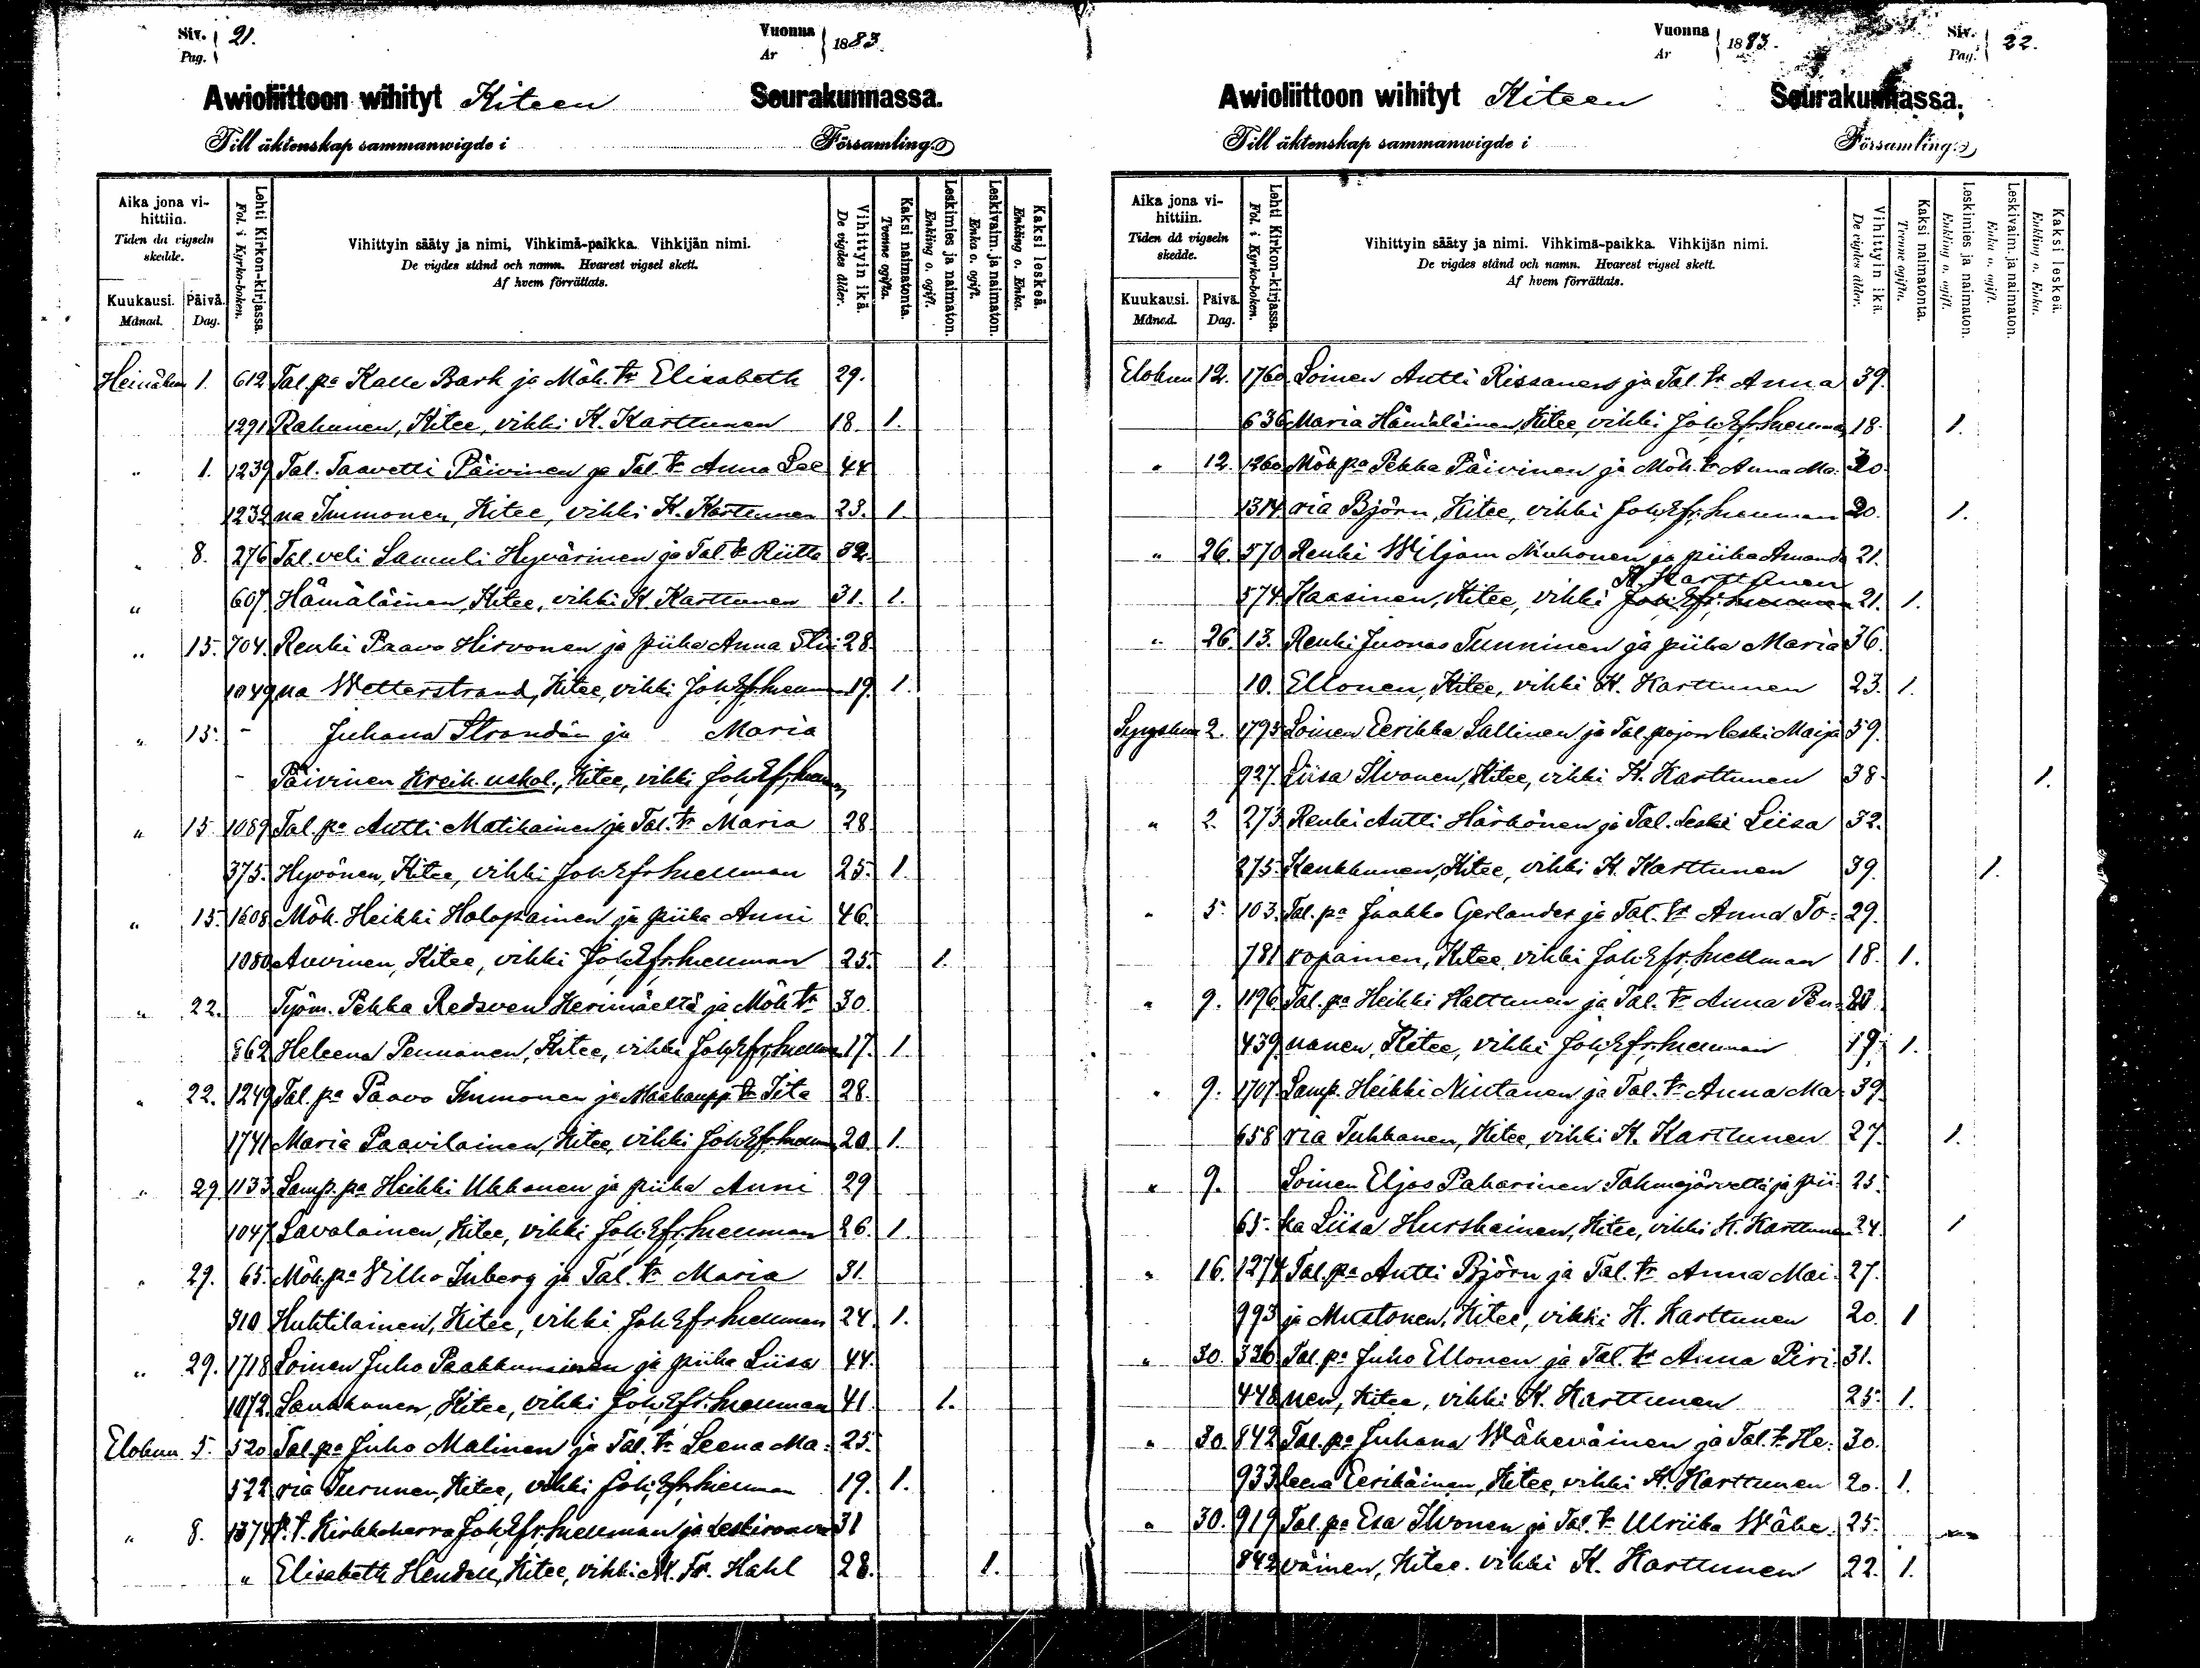 Siv. 21.
Pag.
Vuonna 1883.
År
Awioliittoon wihityt Kiteen Seurakunnassa.
Till äktenskap sammanwigde i Församling.
Aika jona vihittiin.
Tiden då vigseln skedde.
Kuukausi. Månad.
Päivä. Dag.
Lehti Kirkon-kirjassa.
Fol. i Kyrko-boken.
Vihittyin sääty ja nimi. Vihkimä-paikka. Vihkijän nimi.
De vigdes stånd och namn. Hvarest vigsel skett.
Af hvem förrättats.
Vihittyin ikä.
De vigdes ålder.
Kaksi naimatonta.
Tvenne ogifta.
Leskimies ja naimaton.
Enkling o. ogift.
Leskivaim. ja naimaton.
Enka o. ogift.
Kaksi leskeä.
Enkling o. Enka.
Heinäkuu 1. 612 Tal. pa Kalle Bark ja Mök. tr Elisabeth 29.
1291 Rahunen, Kitee, vihki K. Karttunen 18. 1.
" 1. 1239 Tal. Taavetti Päivinen ja Tal. tr Anna Lee 44
1232 na Immonen, Kitee, vihki K. Karttunen 23. 1.
" 8. 276 Tal. veli Samuli Hyvärinen ja Tal. tr Riitta 32.
" 607 Hämäläinen, Kitee, vihki K Karttunen 31. 1.
" 15. 704. Renki Paavo Hirvonen ja piika Anna Sti 28.
1049 na Wetterstrand, Kitee, vihki Joh. Efr. Snellman 19. 1.
" 15. - Juhana Strandén ja Maria
- Päivinen Kreik. uskol., Kitee, vihki Joh. Ef. Snellman
" 15 1089 Tal. pa Antti Matikainen ja Tal. tr Maria 28.
375. Hyvönen, Kitee, vihki Joh Efr Snellman 25. 1.
" 15. 1608 Mök. Heikki Holopainen ja piika Anni 46.
1080 Auvinen, Kitee, vihki Joh Efr. Snellman 25. 1.
" 22. Työm. Pekka Redsven Kerimäeltä ja Mök tr 30.
862 Heleena Pennanen, Kitee, vihki Joh. Efr. Snellman 17. 1
" 22. 1249 Tal. pa Paavo Immonen ja Maakaupp. tr Iita 28.
1741 Maria Paavilainen, Kitee, vihki Joh. Efr. Snellman 20. 1.
" 29 1133 Lamp. pa Heikki Ukkonen ja piika Anni 29
1047 Savolainen, Kitee, vihki Joh. Efr. Snellman 26. 1.
" 29. 65. Mök. pa Wilho Inberg ja Tal. tr Maria 31.
310 Huhtilainen, Kitee, vihki Joh Efr Snellman 24. 1.
" 29. 1718 Loinen Juho Paakkunainen ja piika Liisa 44.
1072. Saukkonen, Kitee, vihki Joh. Efr. Snellman 41. 1.
Elokuu 5. 520 Tal. pa Juho Malinen ja Tal. tr Leena Ma- 25.
522 ria Turunen, Kitee, vihki Joh. Efr. Snellman 19. 1.
" 8. 1374 V. t. Kirkkoherra Joh. Efr. Snellman ja Leskirouva 31
" Elisabeth Hendell, Kitee, vihki M. Fr. Hahl 28. 1.
Vuonna 1883.
År
Siv. 22.
Pag.
Awioliittoon wihityt Kiteen Seurakunnassa.
Till äktenskap sammanwigde i Församling.
Aika jona vihittiin.
Tiden då vigseln skedde.
Kuukausi. Månad.
Päivä. Dag.
Lehti Kirkon-kirjassa.
Fol. i Kyrko-boken.
Vihittyin sääty ja nimi. Vihkimä-paikka. Vihkijän nimi.
De vigdes stånd och namn. Hvarest vigsel skett.
Af hvem förrättats.
Vihittyin ikä.
De vigdes ålder.
Kaksi naimatonta.
Tvenne ogifta.
Leskimies ja naimaton.
Enkling o. ogift.
Leskivaim. ja naimaton.
Enka o. ogift.
Kaksi leskeä.
Enkling o. Enka.
Elokuu 12. 1760 Loinen Antti Rissanen ja Tal. tr Anna 39.
636 Maria Hämäläinen, Kitee, vihki Joh. Ef. Snellman 18. 1.
" 12. 1260 Mök pa Pekka Päivinen ja Mök. tr Anna Ma- 20.
1314 ria Björn, Kitee, vihki Joh. Efr. Snellman 20. 1.
" 26. 570 Renki Wiljam Niuhonen ja piika Amanda 21.
K. Karttunen
574 Kaasinen, Kitee, vihki Joh. Efr. Snellman 21. 1.
" 26. 13. Renki Juonas Tunninen ja piika Maria 36.
10. Ellonen, Kitee, vihki K. Karttunen 23. 1.
Syyskuu 2. 1795 Loinen Eerikka Sallinen ja Tal. pojan leski Maija 59.
927. Liisa Ilvonen, Kitee, vihki K. Karttunen 38. 1.
" 2. 273 Renki Antti Härkönen ja Tal. Leski Liisa 32.
275. Kaukkunen, Kitee, vihki K. Karttunen 39. 1.
" 5. 103. Tal. pa Jaakko Gerlander ja Tal. tr Anna To- 29.
781 ropainen, Kitee, vihki Joh. Efr. Snellman 18. 1.
" 9. 1196 Tal. pa Heikki Hattunen ja Tal. tr Anna Pen-
439 nanen, Kitee, vihki Joh. Efr. Snellman 19. 1.
" 9. 1707. Lamp. Heikki Niutanen ja Tal. tr Anna Ma- 39.
658 ria Tukkanen, Kitee, vihki K. Karttunen 27. 1.
" 9. Loinen Eljas Pakarinen Tohmajärveltä ja pii- 25.
65. ka Liisa Hurskainen, Kitee, vihki K. Karttunen 24. 1
" 16. 1274 Tal. pa Antti Björn ja Tal. tr Anna Mai- 27.
993 ja Mustonen, Kitee, vihki K. Karttunen 20. 1
" 30. 336. Tal. pa Juho Ellonen ja Tal. tr Anna Piri- 31.
448 nen, Kitee, vihki K. Karttunen 25. 1.
" 30. 842 Tal. pa Juhana Wäkeväinen ja Tal. tr He- 30.
933 leena Eerikäinen, Kitee, vihki K. Karttunen 20. 1.
" 30. 919 Tal. pa Esa Ilvonen ja Tal. tr Ulriika Wäke- 25.
842 väinen, Kitee. vihki K. Karttunen 22. 1.